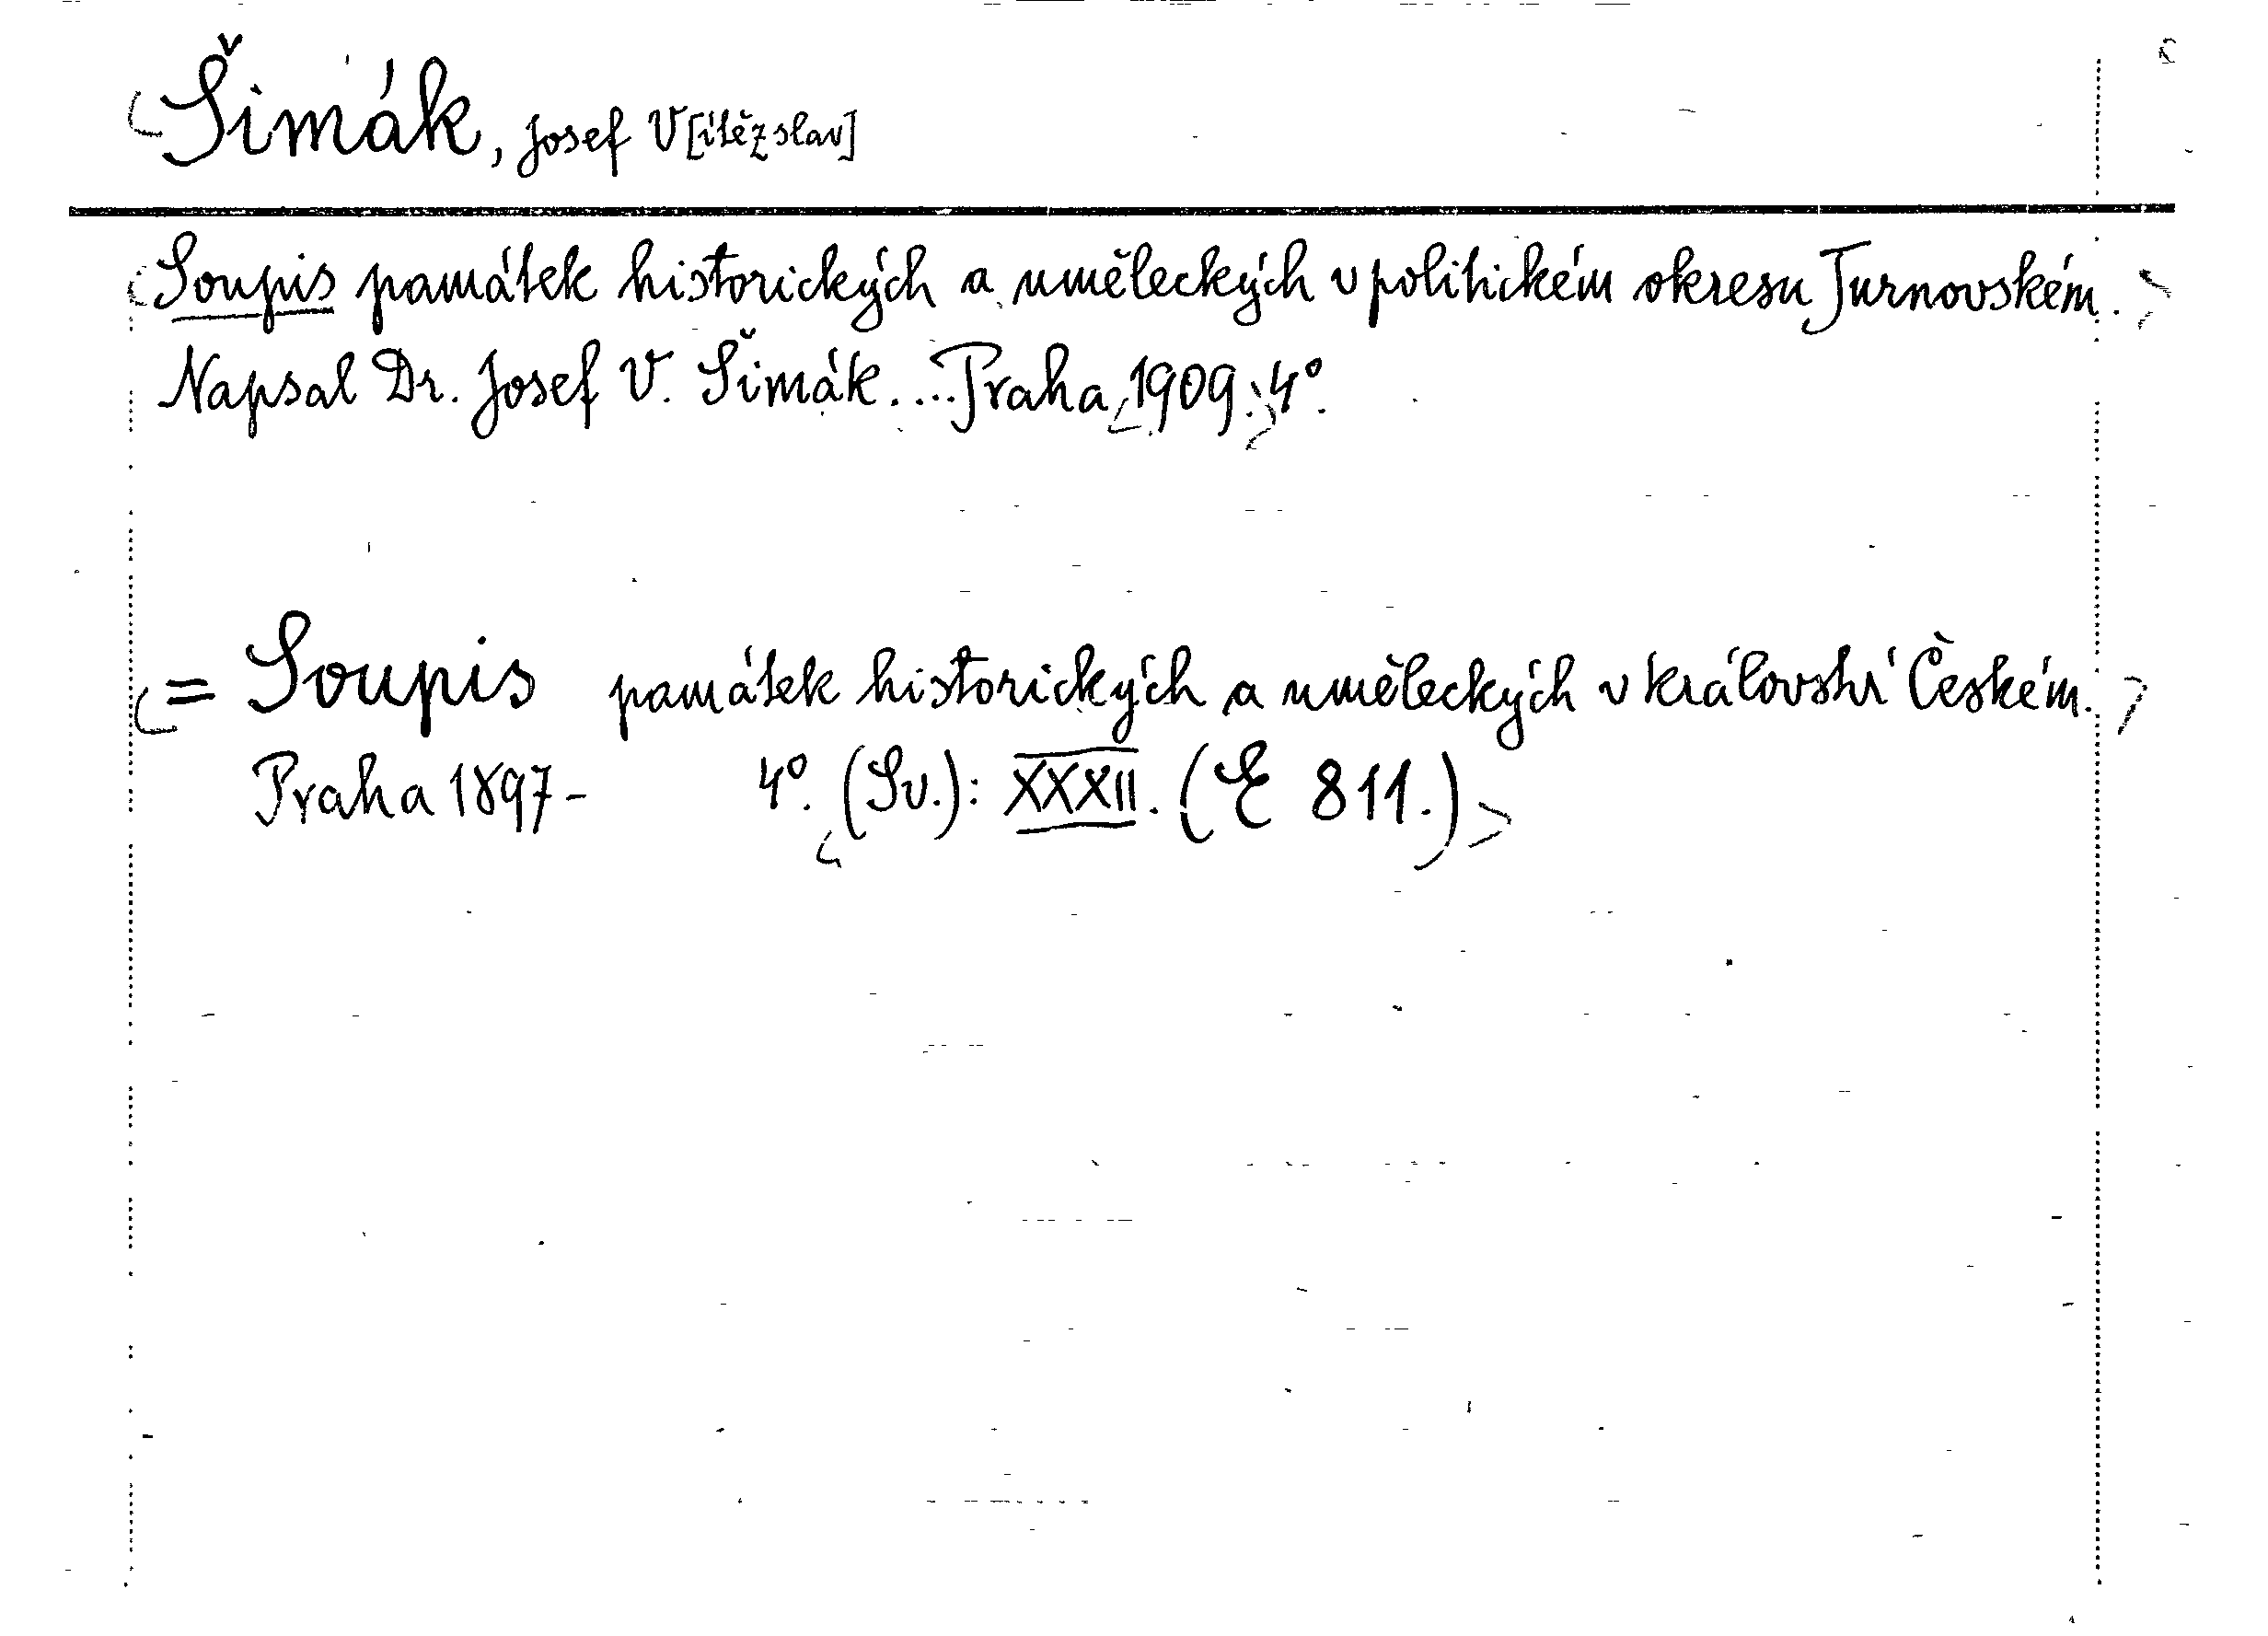 Šimák, Josef V[ítězslav]
Soupis památek historických a uměleckých v politickém okresu Turnovském.
Napsal Dr. Josef V. Šimák.... Praha, 1909. 4°.
= Soupis památek historických a uměleckých v království Českém.
Praha 1897- 4°. (Sv.): XXXII. (E 811.)